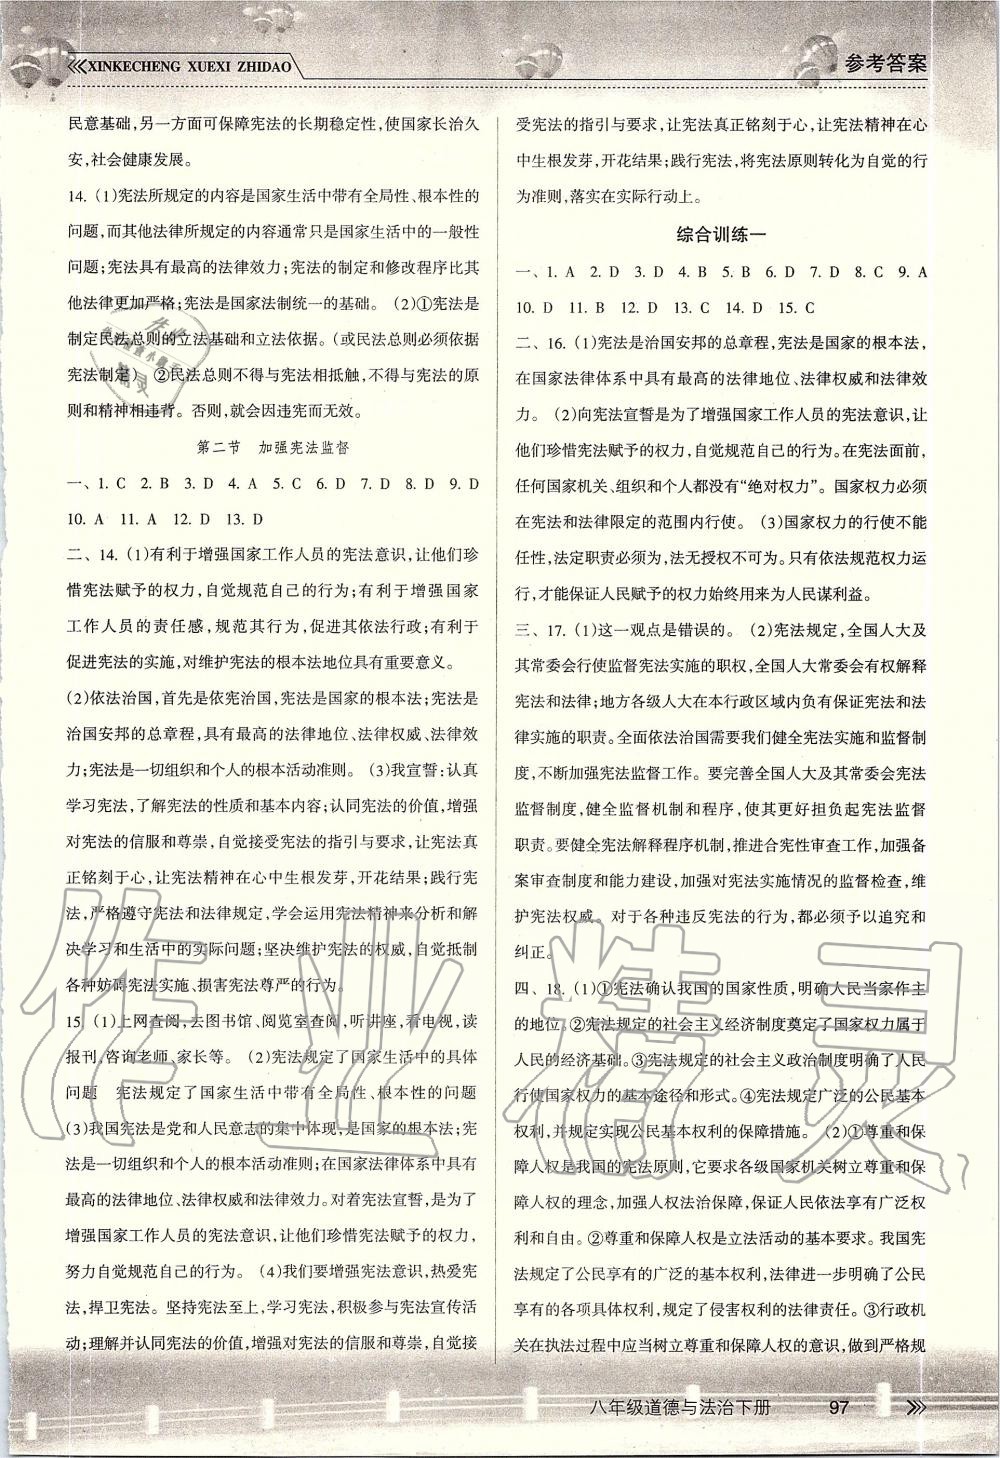 XINKECHENG XUEXI ZHIDAO
参考答案
民意基础,另一方面可保障宪法的长期稳定性,使国家长治久
安,社会健康发展。
14. (1)宪法所规定的内容是国家生活中带有全局性、根本性的
问题,而其他法律所规定的内容通常只是国家生活中的一般性
问题;宪法具有最高的法律效力;宪法的制定和修改程序比其
他法律更加严格;宪法是国家法制统一的基础。 (2)①宪法是
制定民法总则的立法基础和立法依据。(或民法总则必须依据
宪法制定) ②民法总则不得与宪法相抵触,不得与宪法的原
则和精神相违背。否则,就会因违宪而无效。
第二节 加强宪法监督
一、1. C 2. B 3. D 4. A 5. C 6. D 7. D 8. D 9. D
10. A 11. A 12. D 13. D
二、14. (1)有利于增强国家工作人员的宪法意识,让他们珍
惜宪法赋予的权力,自觉规范自己的行为;有利于增强国家
工作人员的责任感,规范其行为,促进其依法行政;有利于
促进宪法的实施,对维护宪法的根本法地位具有重要意义。
(2)依法治国,首先是依宪治国,宪法是国家的根本法;宪法是
治国安邦的总章程,具有最高的法律地位、法律权威、法律效
力;宪法是一切组织和个人的根本活动准则。 (3)我宣誓:认真
学习宪法,了解宪法的性质和基本内容;认同宪法的价值,增强
对宪法的信服和尊崇,自觉接受宪法的指引与要求,让宪法真
正铭刻于心,让宪法精神在心中生根发芽,开花结果;践行宪
法,严格遵守宪法和法律规定,学会运用宪法精神来分析和解
决学习和生活中的实际问题;坚决维护宪法的权威,自觉抵制
各种妨碍宪法实施、损害宪法尊严的行为。
15. (1)上网查阅,去图书馆、阅览室查阅,听讲座,看电视,读
报刊,咨询老师、家长等。 (2)宪法规定了国家生活中的具体
问题 宪法规定了国家生活中带有全局性、根本性的问题
(3)我国宪法是党和人民意志的集中体现,是国家的根本法;宪
法是一切组织和个人的根本活动准则;在国家法律体系中具有
最高的法律地位、法律权威和法律效力。对着宪法宣誓,是为了
增强国家工作人员的宪法意识,让他们珍惜宪法赋予的权力,
努力自觉规范自己的行为。 (4)我们要增强宪法意识,热爱宪
法,捍卫宪法。坚持宪法至上,学习宪法,积极参与宪法宣传活
动;理解并认同宪法的价值,增强对宪法的信服和尊崇,自觉接
受宪法的指引与要求,让宪法真正铭刻于心,让宪法精神在心
中生根发芽,开花结果;践行宪法,将宪法原则转化为自觉的行
为准则,落实在实际行动上。
综合训练一
一、1. A 2. D 3. D 4. B 5. D 6. D 7. D 8. C 9. A
10. D 11. B 12. D 13. C 14. D 15. C
二、16. (1)宪法是治国安邦的总章程,宪法是国家的根本法,
在国家法律体系中具有最高的法律地位、法律权威和法律效
力。 (2)向宪法宣誓是为了增强国家工作人员的宪法意识,让
他们珍惜宪法赋予的权力,自觉规范自己的行为。在宪法面前,
任何国家机关、组织和个人都没有“绝对权力”。国家权力必须
在宪法和法律限定的范围内行使。 (3)国家权力的行使不能
任性,法定职责必须为,法无授权不可为。只有依法规范权力运
行,才能保证人民赋予的权力始终用来为人民谋利益。
三、17. (1)这一观点是错误的。 (2)宪法规定,全国人大及
其常委会行使监督宪法实施的职权,全国人大常委会有权解释
宪法和法律;地方各级人大在本行政区域内负有保证宪法和法
律实施的职责。全面依法治国需要我们健全宪法实施和监督制
度,不断加强宪法监督工作。要完善全国人大及其常委会宪法
监督制度,健全监督机制和程序,使其更好担负起宪法监督
职责。要健全宪法解释程序机制,推进合宪性审查工作,加强备
案审查制度和能力建设,加强对宪法实施情况的监督检查,维
护宪法权威。对于各种违反宪法的行为,都必须予以追究和
纠正。
四、18. (1)①宪法确认我国的国家性质,明确人民当家作主
的地位。②宪法规定的社会主义经济制度奠定了国家权力属于
人民的经济基础。③宪法规定的社会主义政治制度明确了人民
行使国家权力的基本途径和形式。④宪法规定广泛的公民基本
权利,并规定实现公民基本权利的保障措施。 (2)①尊重和保
障人权是我国的宪法原则,它要求各级国家机关树立尊重和保
障人权的理念,加强人权法治保障,保证人民依法享有广泛权
利和自由。②尊重和保障人权是立法活动的基本要求。我国宪
法规定了公民享有的广泛的基本权利,法律进一步明确了人民
享有的各项具体权利,规定了侵害权利的法律责任。③行政机
关在执法过程中应当树立尊重和保障人权的意识,做到严格规
作业精灵
八年级道德与法治下册 97